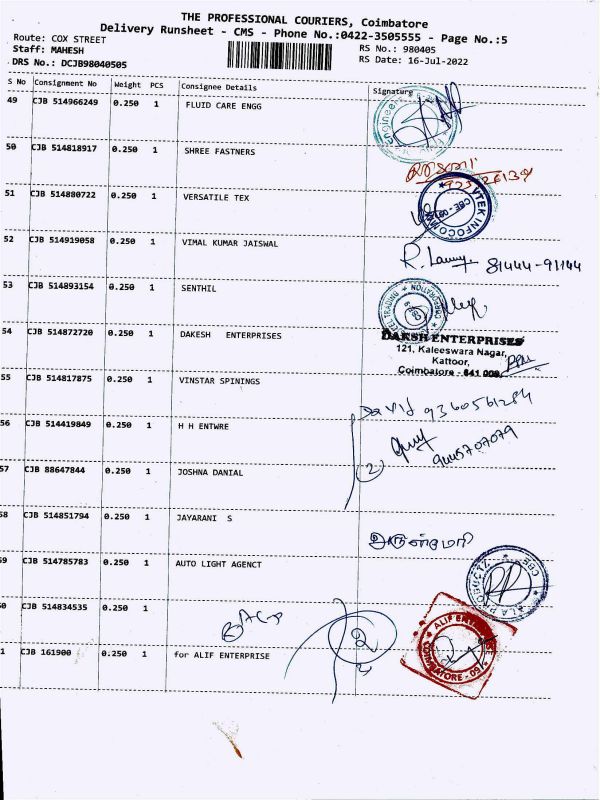 THE PROFESSIONAL COURIERS, Coimbatore
Delivery Runsheet - CMS - Phone No.:0422-3505555 - Page No.:5
Route: COX STREET
RS No.: 980405
Staff: MAHESH
RS Date: 16-Jul-2022
DRS No.: DCJB98040505
S No Consignment No Weight PCS Consignee Details Signature
49 CJB 514966249 0.250 1 FLUID CARE ENGG
50 CJB 514818917 0.250 1 SHREE FASTNERS
51 CJB 514880722 0.250 1 VERSATILE TEX
VTEK INFOCOMM
52 CJB 514919058 0.250 1 VIMAL KUMAR JAISWAL
81444-91144
53 CJB 514893154 0.250 1 SENTHIL
54 CJB 514872720 0.250 1 DAKESH ENTERPRISES
DAKSH ENTERPRISES
121, Kaleeswara Nagar,
Kattoor,
Coimbatore - 641 009.
55 CJB 514817875 0.250 1 VINSTAR SPININGS
David 9360561284
56 CJB 514419849 0.250 1 H H ENTWRE
9445707079
57 CJB 88647844 0.250 1 JOSHNA DANIAL
2
58 CJB 514851794 0.250 1 JAYARANI S
59 CJB 514785783 0.250 1 AUTO LIGHT AGENCT
0 CJB 514834535 0.250 1
1 CJB 161900 0.250 1 for ALIF ENTERPRISE
2
ALIF ENTERPRISE
COIMBATORE - 09